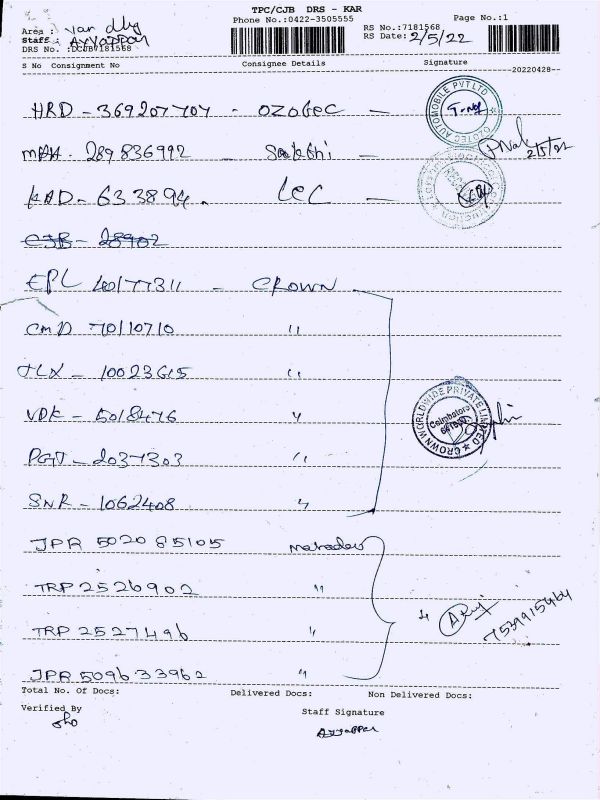 TPC/CJB DRS - KAR
Phone No.:0422-3505555
RS No.:7181568
Page No.:1
Area : van dly
Staff : Ayyappan
RS Date: 2/5/22
DRS No. :DCJB7181568
S No Consignment No Consignee Details Signature
20220428
HRD - 369207707 - OZOTEC -
MAA 289836992 - Sakthi -
2/5/22
KAD - 633894. LEC -
CJB - 28902
EPL 40177311 - CROWN
CMD 70110710 "
JLX - 10023615 "
VDK - 5018476 "
PGT - 2037303 "
SNR - 1062408 "
JPR 502085105 Mahadev
TRP 2526902 "
TRP 2527496 "
JPR 509633962 "
7539915464
OZOTEC AUTOMOBILE PVT LTD
CROWN WORLDWIDE PRIVATE LIMITED
Coimbatore
Total No. Of Docs: Delivered Docs: Non Delivered Docs:
Verified By
Staff Signature
Ayyappan